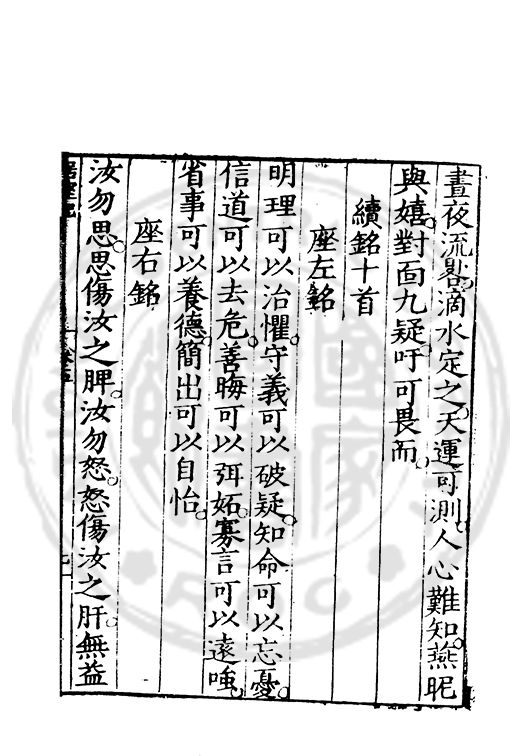 晝夜流晷滴水定之天運可測人心難知燕昵
與嬉對面九疑吁可畏而
續銘十首
座左銘
明理可以治懼守義可以破疑知命可以忘憂
信道可以去危善晦可以弭妬寡言可以遠嗤
省事可以養德簡出可以自怡
座右銘
汝勿思思傷汝之脾汝勿怒怒傷汝之肝無益